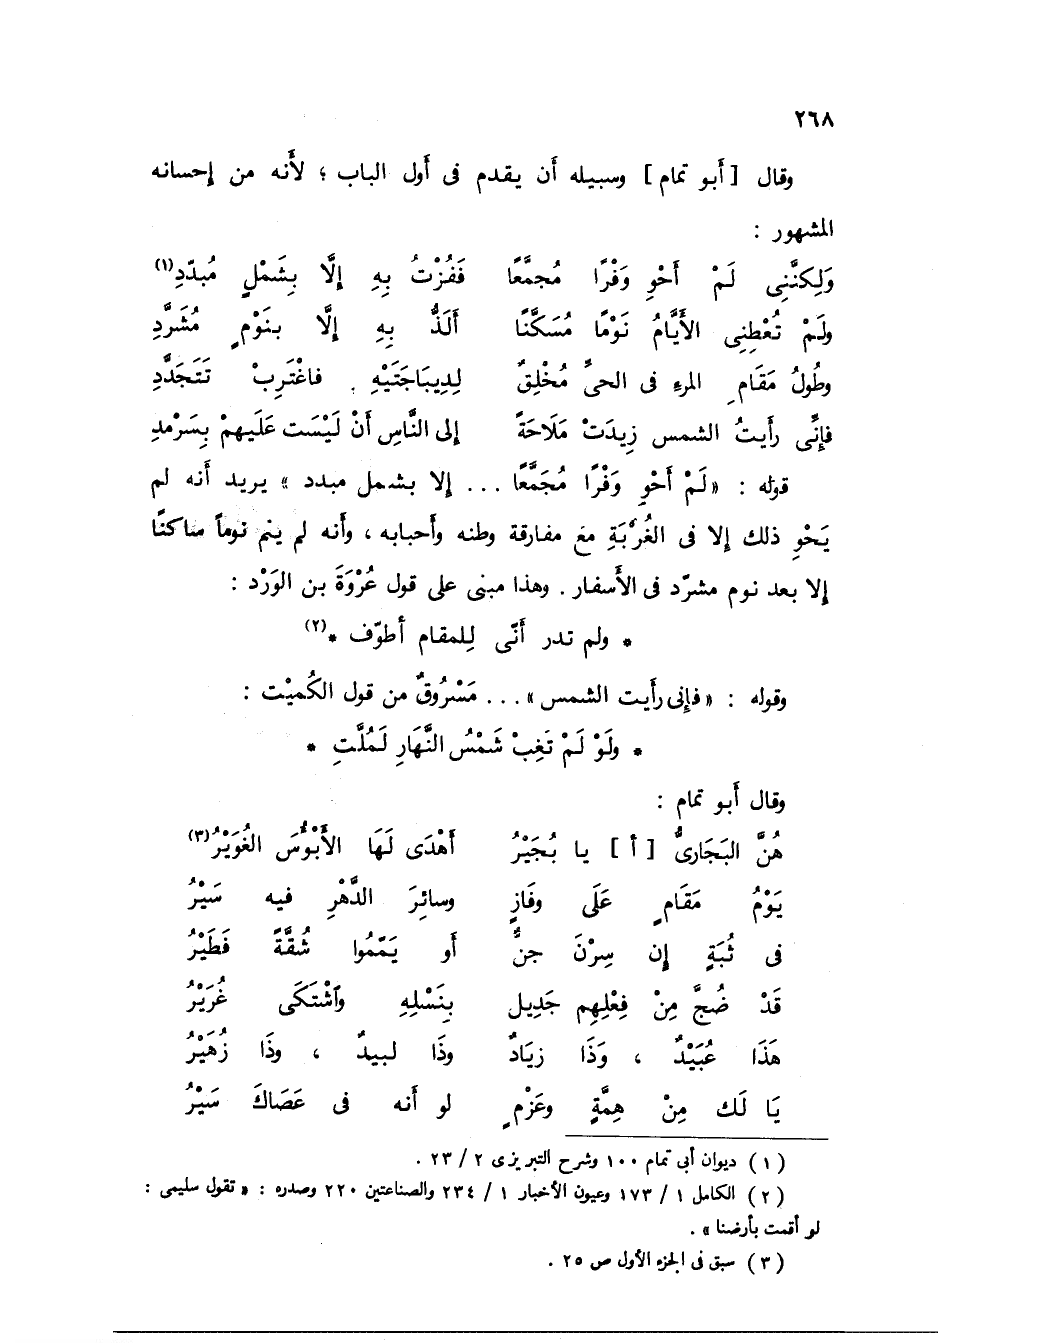 ٢٦٨
وقال [ أَبو تمام ] وسبيله أَن يقدم فى أَول الباب ؛ لأَنه من إِحسانه
المشهور :
وَلٰكِنَّنِى لَمْ أَحْوِ وَفْرًا مُجمَّعًا فَفُزْتُ بِهِ إِلَّا بِشَمْلٍ مُبدّدِ(١)
ولَمْ تُعْطِنِى الأَيَّامُ نَوْمًا مُسَكَّنًا أَلَذُّ بِهِ إِلَّا بنَوْمٍ مُشَرَّدِ
وطُولُ مَقَامِ المرءِ فى الحىِّ مُخْلِقٌ لِدِيبَاجَتَيْهِ فاغْتَرِبْ تَتَجَدَّدِ
فإِنِّى رأَيتُ الشمس زِيدَتْ مَلَاحَةً إِلى النَّاسِ أَنْ لَيْسَت عَلَيهمْ بِسَرْمدِ
قوله : « لَمْ أَحْوِ وَفْرًا مُجَمَّعًا ... إِلا بشمل مبدد » يريد أَنه لم
يَحْوِ ذلك إِلا فى الغُرْبَةِ مع مفارقة وطنه وأَحبابه ، وأَنه لم ينم نوماً ساكنًا
إِلا بعد نوم مشرّد فى الأَسفار . وهذا مبنى على قول عُرْوَةَ بن الوَرْد :
* ولم تدر أَنّى لِلمقام أُطوّف *(٢)
وقوله : « فإِنى رأَيت الشمس » ... مَسْرُوقٌ من قول الكُميْت :
* ولَوْ لَمْ تَغِبْ شَمْسُ النَّهَارِ لَمُلَّتِ *
وقال أَبو تمام :
هُنَّ البَجَارىُّ [ أ ] يا بُجَيْرُ أَهْدَى لَهَا الأَبْؤُسَ الغُوَيْرُ(٣)
يَوْمُ مَقَامٍ عَلَى وفَازٍ وسائِرَ الدَّهْرِ فيه سَيْرُ
فى ثُبَةٍ إِن سِرْنَ جنٌّ أَو يَمَّمُوا شُقَّةً فَطَيْرُ
قَدْ ضُجَّ مِنْ فِعْلِهِم جَدِيل بِنَسْلِهِ وٱشْتَكَى غُرَيْرُ
هَذَا عُبَيْدٌ ، وَذَا زيَادٌ وذَا لبيدٌ ، وذَا زُهَيْرُ
يَا لَك مِنْ هِمَّةٍ وعَزْمٍ لو أَنه فى عَصَاكَ سَيْرُ
( ١ ) ديوان أبى تمام ١٠٠ وشرح التبريزى ٢ / ٢٣ .
( ٢ ) الكامل ١ / ١٧٣ وعيون الأخبار ١ / ٢٣٤ والصناعتين ٢٢٠ وصدره : « تقول سليمى :
لو أقمت بأرضنا » .
( ٣ ) سبق فى الجزء الأول ص ٢٥ .